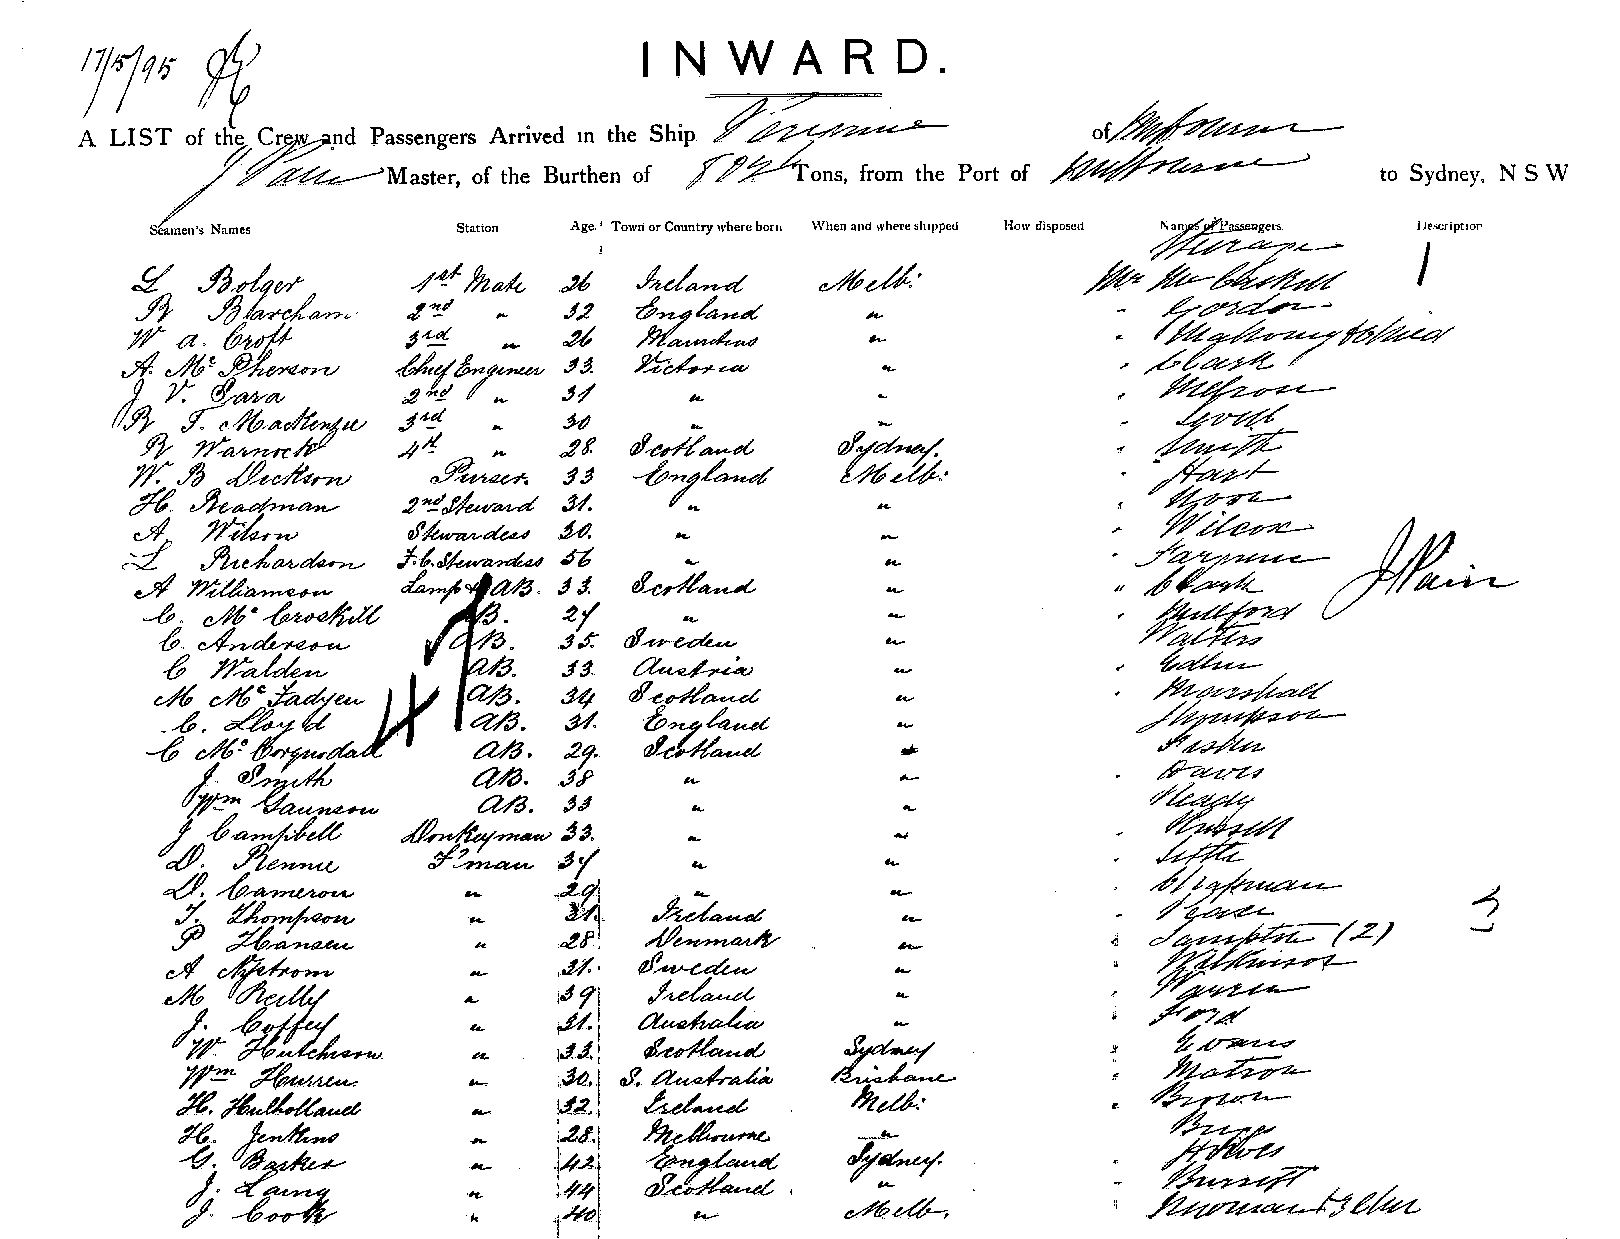 17/5/95
INWARD.
A LIST of the Crew and Passengers Arrived in the Ship of Melbourne
J Pain Master, of the Burthen of Tons, from the Port of Melbourne to Sydney, N S W
Seamen's Names Station Age. Town or Country where born When and where shipped How disposed Names of Passengers. Description
Steerage
L Bolger 1st Mate 26 Ireland Melb: Mr McCaskill 1
R Blarcham 2nd " 32 England " " Gordon
W a. Croft 3rd " 26 Mauritius " " Mahony & child
A. Mc Pherson Chief Engineer 33. Victoria " " Clark
J V. Sara 2nd " 31 " " "
R T. MacKenzie 3rd " 30 " " "
R Warnock 4th " 28. Scotland Sydney. " Smith
W. B Dickson Purser. 33 England Melb: " Hart
H. Readman 2nd Steward 31. " " "
A Wilson Stewardess 30. " " " Wilcox
L Richardson F.C. Stewardess 56 " " "
A Williamson Lamp & AB. 33. Scotland " " Clark J Pain
C. Mc Croskill AB. 27 " " " Millford
C. Anderson AB. 35. Sweden " Walters
C Walden AB. 33. Austria " "
M Mc Fadyen AB. 34 Scotland " " Marshall
C. Lloyd AB. 31. England " Thompson
C Mc Corquodall AB. 29. Scotland "
J. Smith AB. 38 " " " Davis
Wm Gaunson AB. 33 " " Ready
J Campbell Donkeyman 33. " " " Russell
D. Rennie F'man 37 " " " Little
D. Cameron " 29 " " " Chapman
T. Thompson " 31. Ireland " "
P Hansen " 28 Denmark " " (2) 3
A Nystrom " 31. Sweden " " Wilkinson
M Reilly " 39 Ireland " " Warren
J. Coffey " 31. Australia " " Ford
W. Hutchison " 33. Scotland Sydney " Evans
Wm Hurren " 30. S. Australia Brisbane " Matson
H. Hulholland " 32. Ireland Melb: " Brown
H. Jenkins " 28. Melbourne "
G. Barker " 42 England Sydney. "
J. Laing " 44 Scotland " " Burnett
J. Cook " 40 " Melb. " Newman &